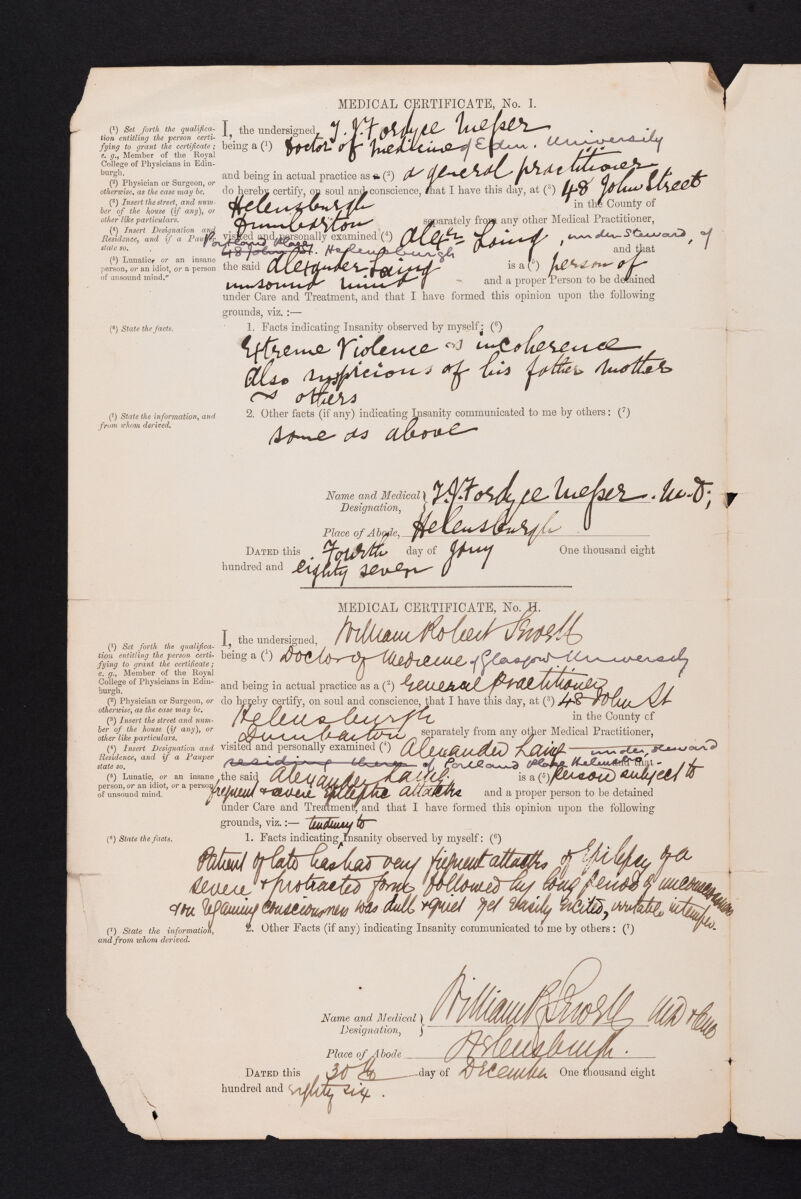 MEDICAL CERTIFICATE, No. I.
(¹) Set forth the qualifica-
tion entitling the person certi-
fying to grant the certificate;
e. g., Member of the Royal
College of Physicians in Edin-
burgh.
(²) Physician or Surgeon, or
otherwise, as the case may be.
(³) Insert the street, and num-
ber of the house (if any), or
other like particulars.
(⁴) Insert Designation and
Residence, and if a Pauper
state so.
(⁵) Lunatic, or an insane
person, or an idiot, or a person
of unsound mind."
I, the undersigned, T. J. Fordyce Messer
being a (¹) Doctor of Medicine of Edin. University
and being in actual practice as a (²) a general practitioner
do hereby certify, on soul and conscience, that I have this day, at (³) 48 John Street
Helensburgh in the County of
Dumbarton separately from any other Medical Practitioner,
visited and personally examined (⁴) Alexr. Laing, under Steward, of
Portland Place
48 John St. Helensburgh and that
the said Alexander Laing is a (⁵) person of
unsound mind and a proper Person to be detained
under Care and Treatment, and that I have formed this opinion upon the following
grounds, viz. :—
(⁶) State the facts.
1. Facts indicating Insanity observed by myself: (⁶)
Extreme Violence & incoherence
Also suspicious of his father mother
& others
(⁷) State the information, and
from whom derived.
2. Other facts (if any) indicating Insanity communicated to me by others: (⁷)
same as above
Name and Medical Designation, T. J. Fordyce Messer. M.D;
Place of Abode, Helensburgh
DATED this Fourth day of Jany One thousand eight
hundred and eighty seven
MEDICAL CERTIFICATE, No. II.
(¹) Set forth the qualifica-
tion entitling the person certi-
fying to grant the certificate;
e. g., Member of the Royal
College of Physicians in Edin-
burgh.
(²) Physician or Surgeon, or
otherwise, as the case may be.
(³) Insert the street and num-
ber of the house (if any), or
other like particulars.
(⁴) Insert Designation and
Residence, and if a Pauper
state so.
(⁵) Lunatic, or an insane
person, or an idiot, or a person
of unsound mind.
I, the undersigned, William Robert Sewell
being a (¹) Doctor of Medicine of Glasgow University
and being in actual practice as a (²) General Practitioner
do hereby certify, on soul and conscience, that I have this day, at (³) 48 John St
Helensburgh in the County of
Dumbarton separately from any other Medical Practitioner,
visited and personally examined (⁴) Alexander Laing under steward
residing there of Portland Place Helensb and that
the said Alexander Laing is a (⁵) Person subject to
frequent & severe Epileptic attacks and a proper person to be detained
under Care and Treatment, and that I have formed this opinion upon the following
grounds, viz. :— tendency to
(⁶) State the facts.
1. Facts indicating Insanity observed by myself: (⁶)
Patient of late has had very frequent attacks of Epilepsy of a
severe & protracted form followed by long period of unconsciousness
& on regaining consciousness was dull & quiet yet easily excited, irritable
(⁷) State the information,
and from whom derived.
2. Other Facts (if any) indicating Insanity communicated to me by others: (⁷)
Name and Medical Designation, William R Sewell MD & CM
Place of Abode Helensburgh.
DATED this 30th day of December One thousand eight
hundred and eighty six.